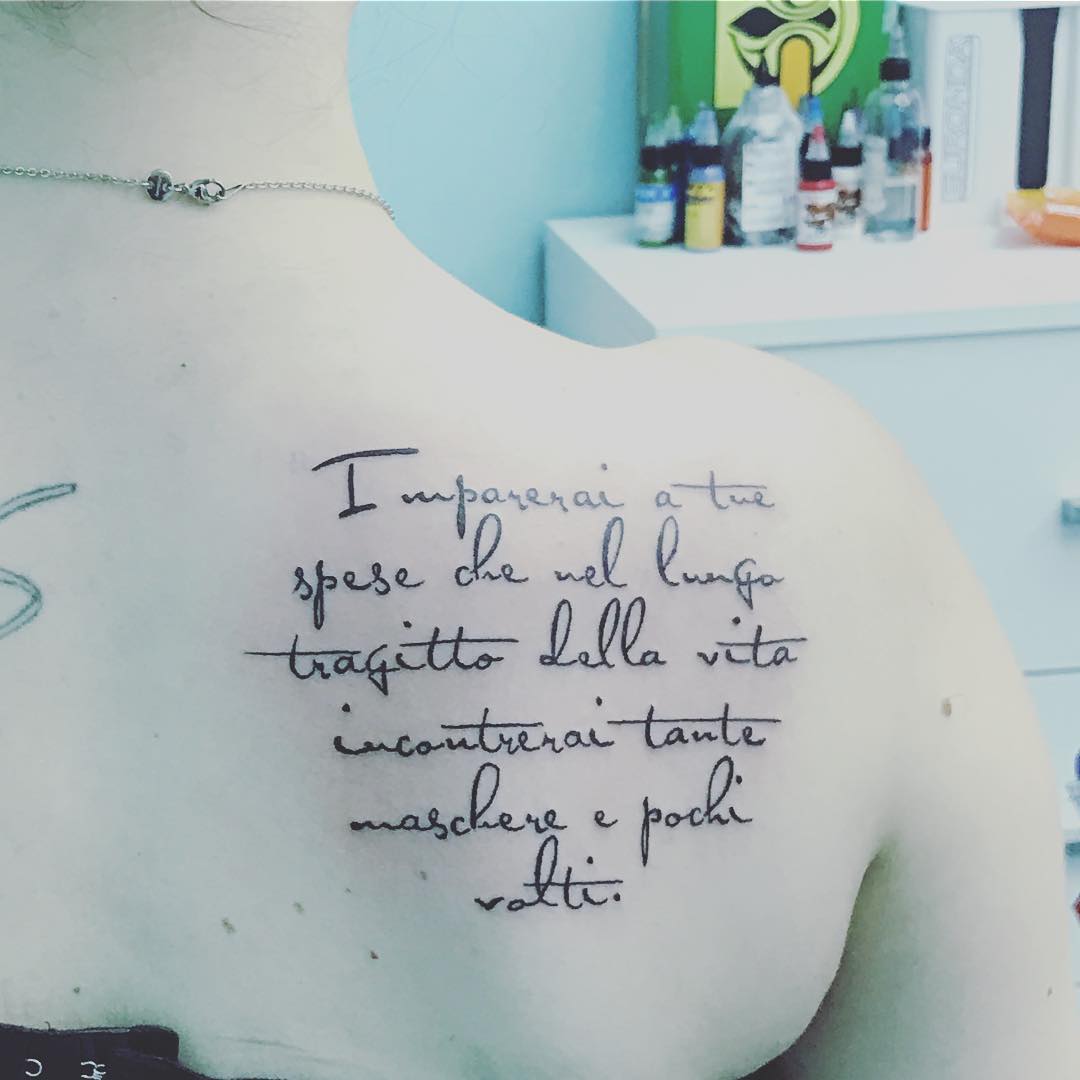 Imparerai a tue
spese che nel lungo
tragitto della vita
incontrerai tante
maschere e pochi
volti.